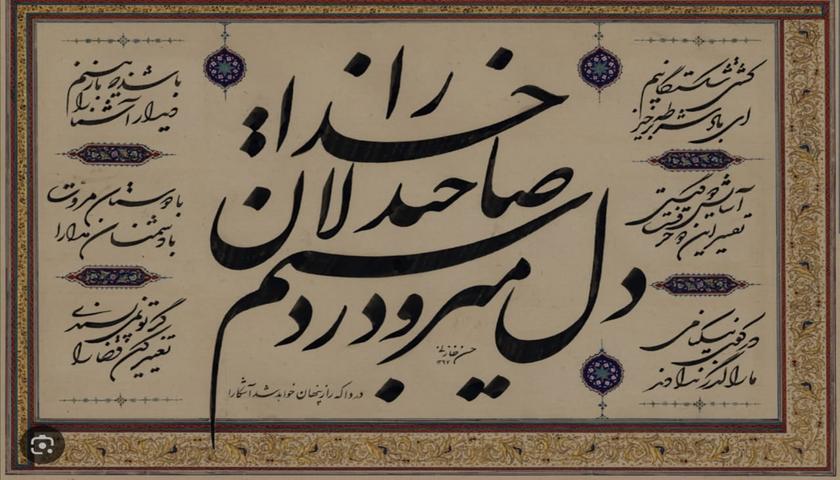 دل میرود ز دستم
صاحبدلان
خدا را
دردا که راز پنهان خواهد شد آشکارا
کشتی شکستگانیم
ای باد شرطه برخیز
باشد که باز بینم
دیدار آشنا را
آسایش دو گیتی
تفسیر این دو حرفست
با دوستان مروت
با دشمنان مدارا
در کوی نیکنامی
ما را گذر ندادند
گر تو نمی پسندی
تغییر کن قضا را